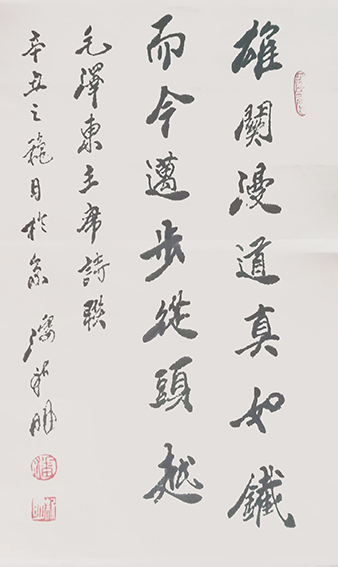 雄關漫道真如鐵
而今邁步從頭越
毛澤東主席詩聯
辛丑之龝月於